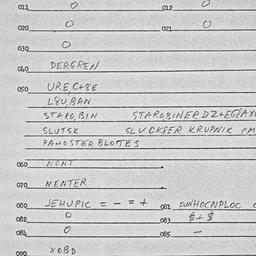 011 0 012 0
020 0 021 0
030 0
040 DERGREN
050 URE,C+8E
L8U,BAN
STARO,BIN STAROBINERDZ+EGIAYO
SLUTSK SLUCKSER KRUPNIK
PANOSTER BLOTES
060 NONT
070 NENTER
080 JEHUPIC = - = + 081 DUNHOCNPLOC
082 0 083 $+$
084 0 085 -
090 XOBD